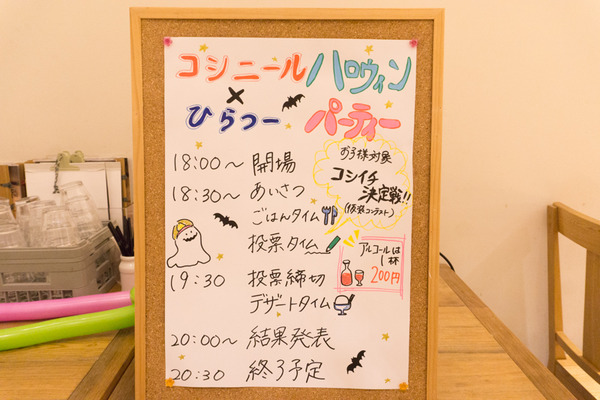 コシニール
×
ひらつー
ハロウィン
パーティー
18:00～ 開場
18:30～ あいさつ
ごはんタイム
投票タイム
19:30 投票締切
デザートタイム
20:00～ 結果発表
20:30 終了予定
お子様対象
コシイチ
決定戦!!
(仮装コンテスト)
アルコールは
1杯
200円